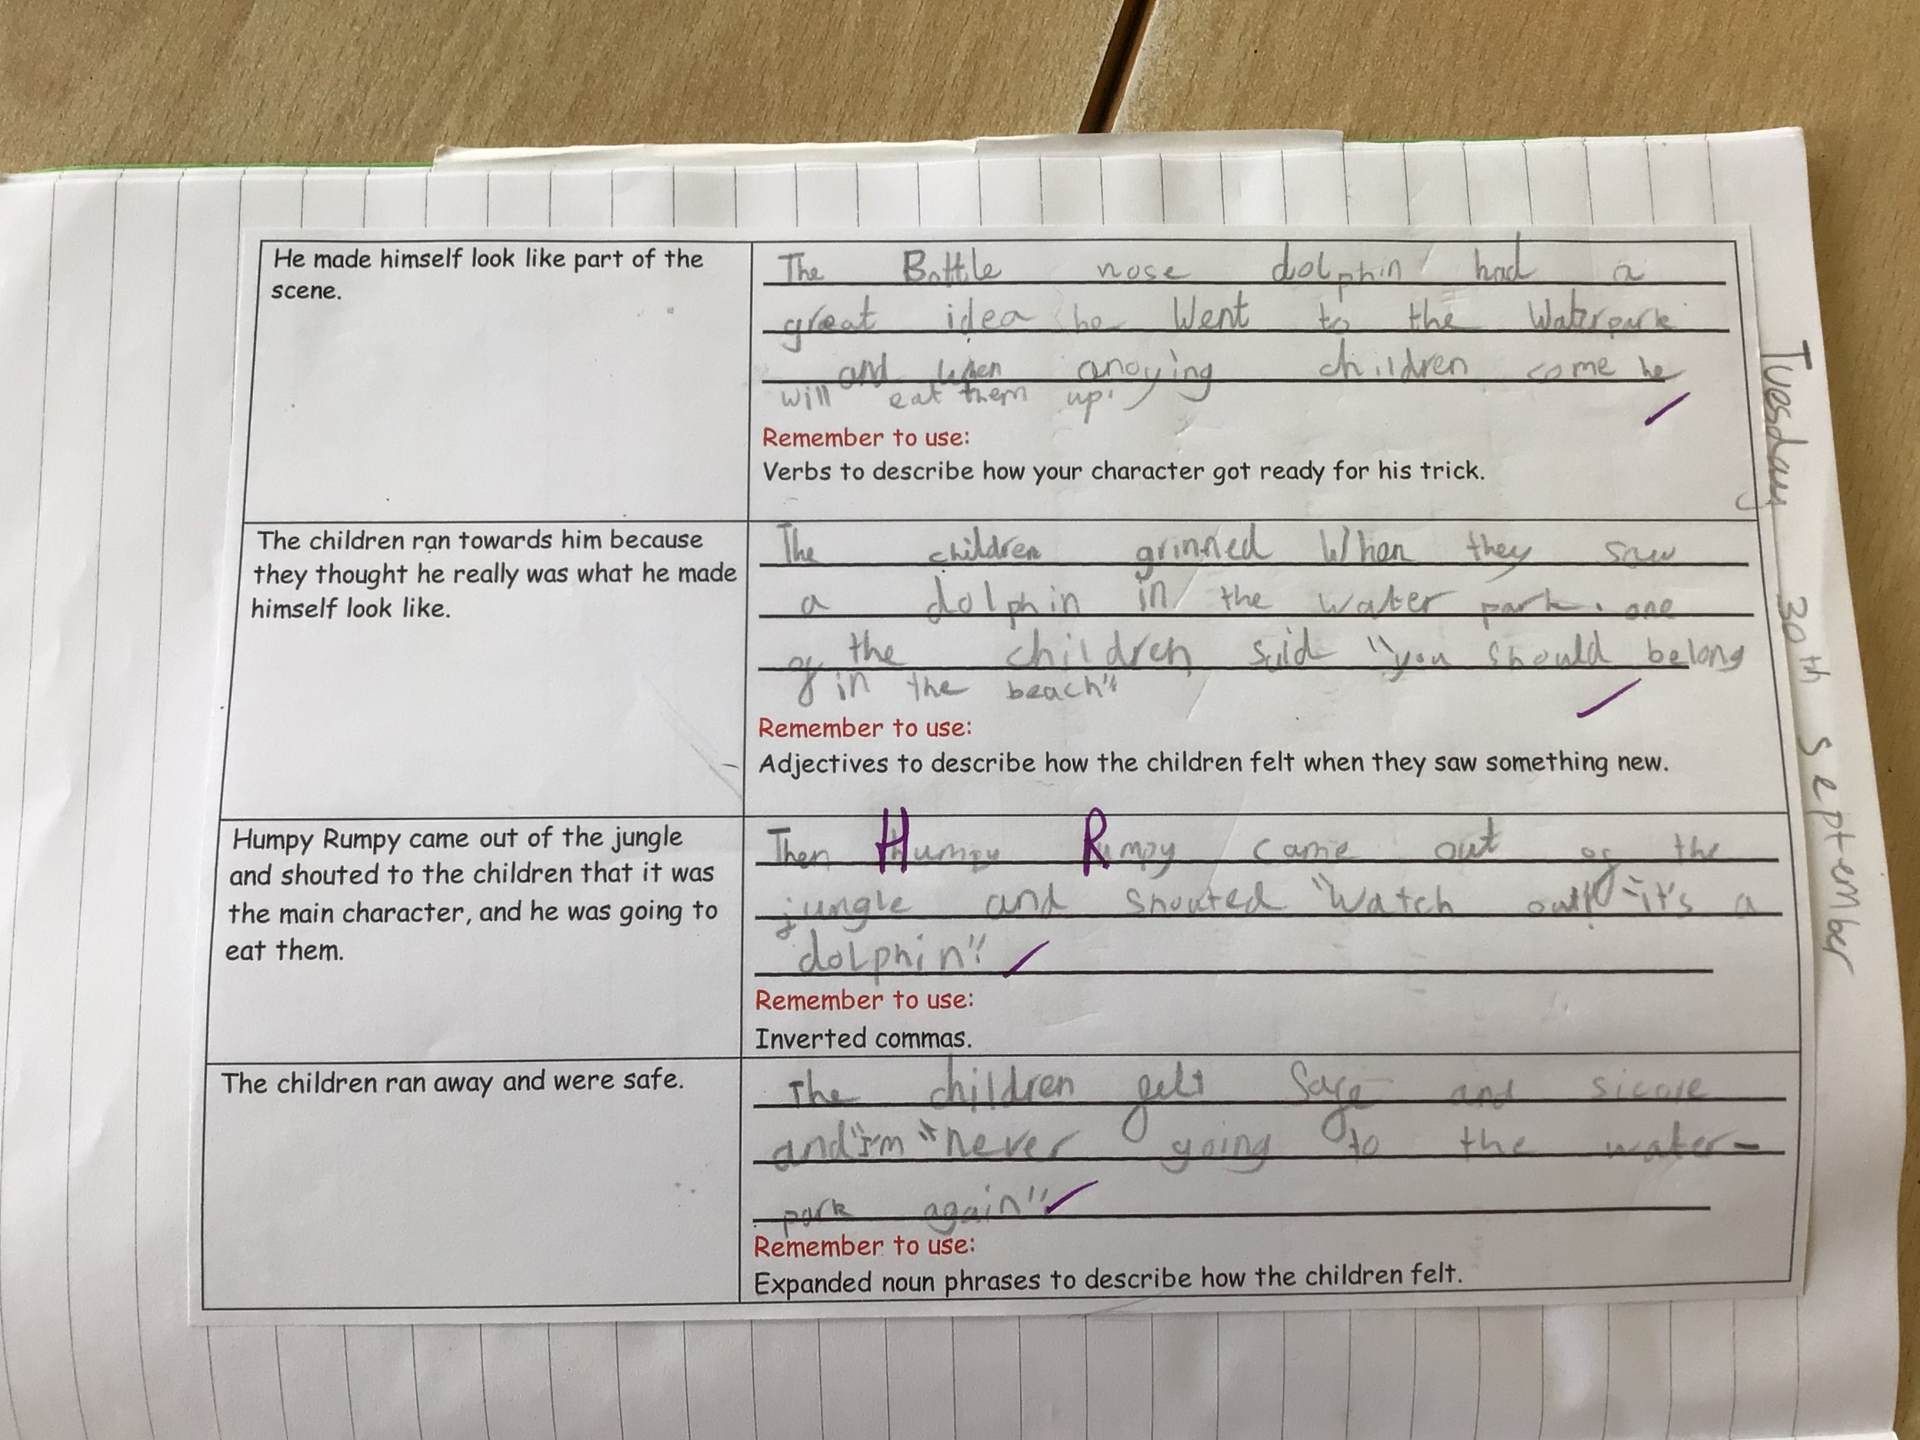 He made himself look like part of the
scene.
The Bottle nose dolphin had a
great idea he Went to the Waterpark
and when anoying children come he
will eat them up.
Remember to use:
Verbs to describe how your character got ready for his trick.
The children ran towards him because
they thought he really was what he made
himself look like.
The children grinned When they saw
a dolphin in the water park. one
of the children said "you should belong
in the beach"
Remember to use:
Adjectives to describe how the children felt when they saw something new.
Humpy Rumpy came out of the jungle
and shouted to the children that it was
the main character, and he was going to
eat them.
Then Humpy Rumpy came out of the
jungle and shouted "Watch out" "it's a
dolphin"!
Remember to use:
Inverted commas.
The children ran away and were safe.
The children felt safe and
and "I'm "never going to the water-
park again"
Remember to use:
Expanded noun phrases to describe how the children felt.
Tuesday 30th September